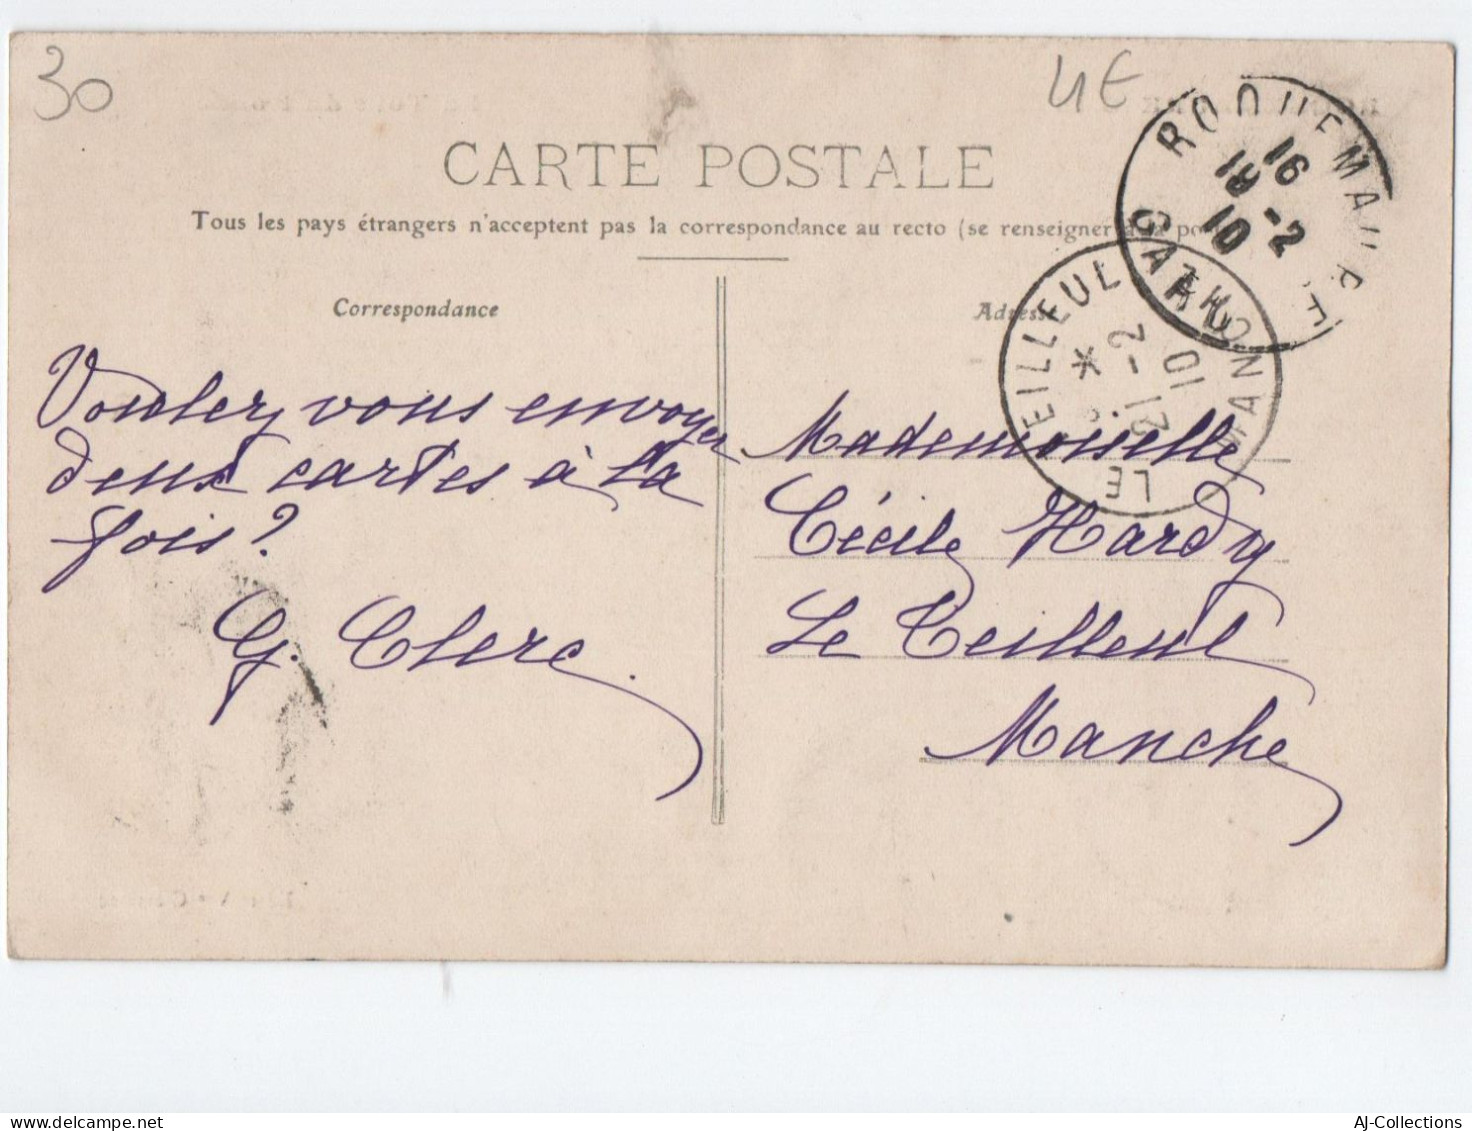 30
4€
CARTE POSTALE
Tous les pays étrangers n'acceptent pas la correspondance au recto (se renseigner
Correspondance
Adresse
ROQUEMAURE
16
18 -2
10
GARD
LE TEILLEUL
*
21 -2
10
MANCHE
Voulez vous envoyer
deux cartes à la
fois?
G. Clerc.
Mademoiselle
Cécile Hardy
Le Teilleul
Manche
AJ-Collections